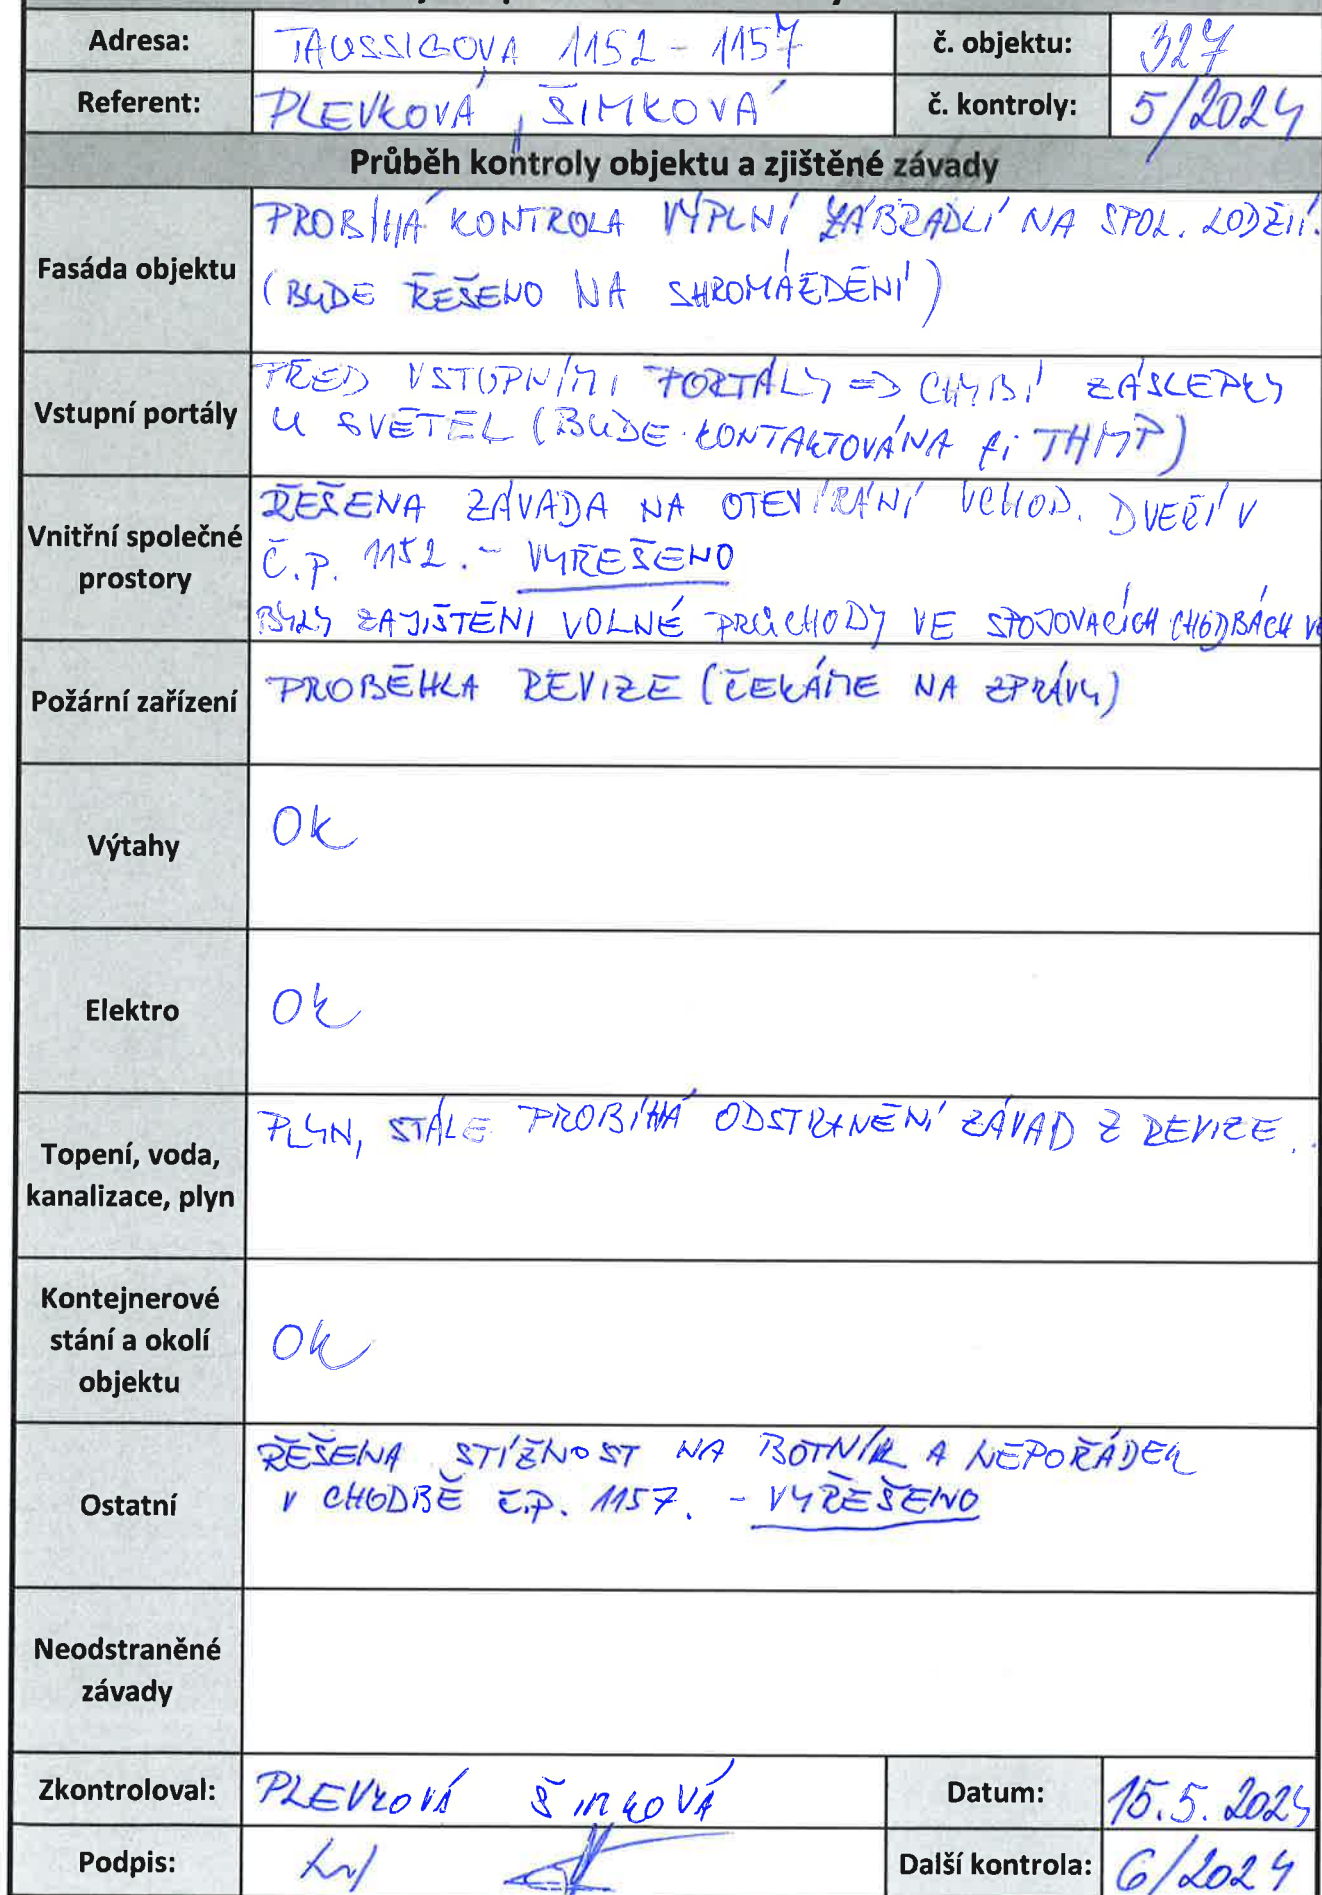 Adresa: TAUSSIGOVA 1152 - 1157 č. objektu: 327
Referent: PLEVKOVÁ, ŠIMKOVÁ č. kontroly: 5/2024
Průběh kontroly objektu a zjištěné závady
Fasáda objektu
PROBÍHÁ KONTROLA VÝPLNÍ ZÁBRADLÍ NA SPOL. LODŽII.
(BUDE ŘEŠENO NA SHROMÁŽDĚNÍ)
Vstupní portály
PŘED VSTUPNÍMI PORTÁLY => CHYBÍ ZÁSLEPKY
U SVĚTEL (BUDE KONTAKTOVÁNA fi THMP)
Vnitřní společné
prostory
ŘEŠENA ZÁVADA NA OTEVÍRÁNÍ VCHOD. DVEŘÍ V
Č.P. 1152. - VYŘEŠENO
BYLY ZAJIŠTĚNI VOLNÉ PRŮCHODY VE SPOJOVACÍCH CHODBÁCH
Požární zařízení
PROBĚHLA REVIZE (ČEKÁME NA ZPRÁVU)
Výtahy
OK
Elektro
OK
Topení, voda,
kanalizace, plyn
PLYN, STÁLE PROBÍHÁ ODSTRANĚNÍ ZÁVAD Z REVIZE.
Kontejnerové
stání a okolí
objektu
OK
Ostatní
ŘEŠENA STÍŽNOST NA BOTNÍK A NEPOŘÁDEK
V CHODBĚ Č.P. 1157. - VYŘEŠENO
Neodstraněné
závady
Zkontroloval: PLEVKOVÁ ŠIMKOVÁ Datum: 15.5.2024
Podpis: Další kontrola: 6/2024